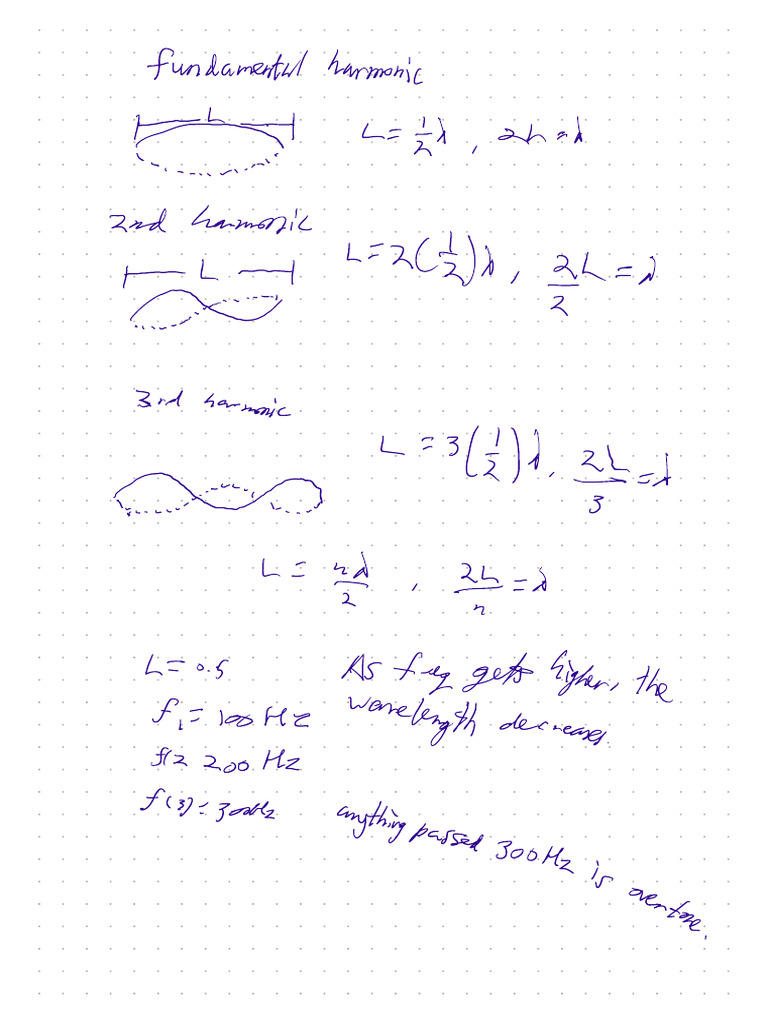 fundamental harmonic
L
L = 1/2 λ , 2L = λ
2nd harmonic
L
L = 2(1/2)λ , 2/2 L = λ
3rd harmonic
L = 3(1/2)λ, 2L/3 = λ
L = nλ/2 , 2L/n = λ
L = 0.5
f1 = 100 Hz
f(2 200 Hz
f(3) = 300Hz
As freq gets higher, the
wavelength decreases.
anything passed 300Hz is overtone.